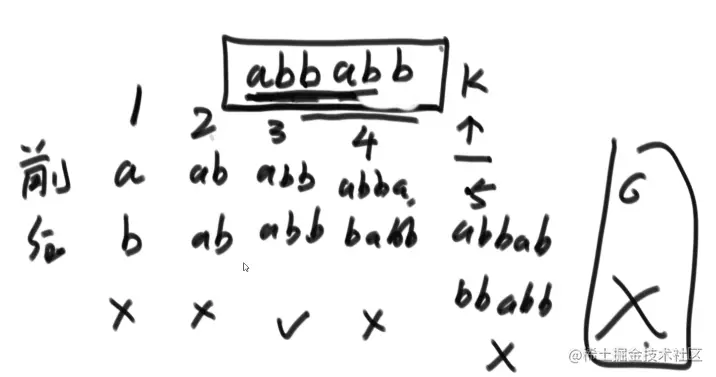 abbabb K
1 2 3 4 ↑
前 a ab abb abba 5
后 b ab abb babb abbab 6
bbabb
× × ✓ × × ×
@稀土掘金技术社区